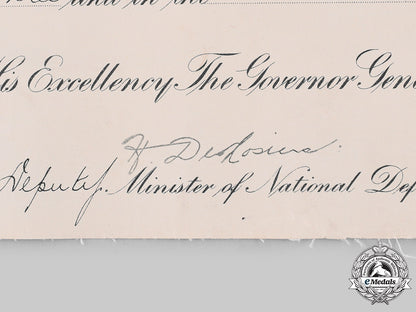 and in the
His Excellency The Governor Gen
H. DesRosiers.
Deputy. Minister of National Def
eMedals